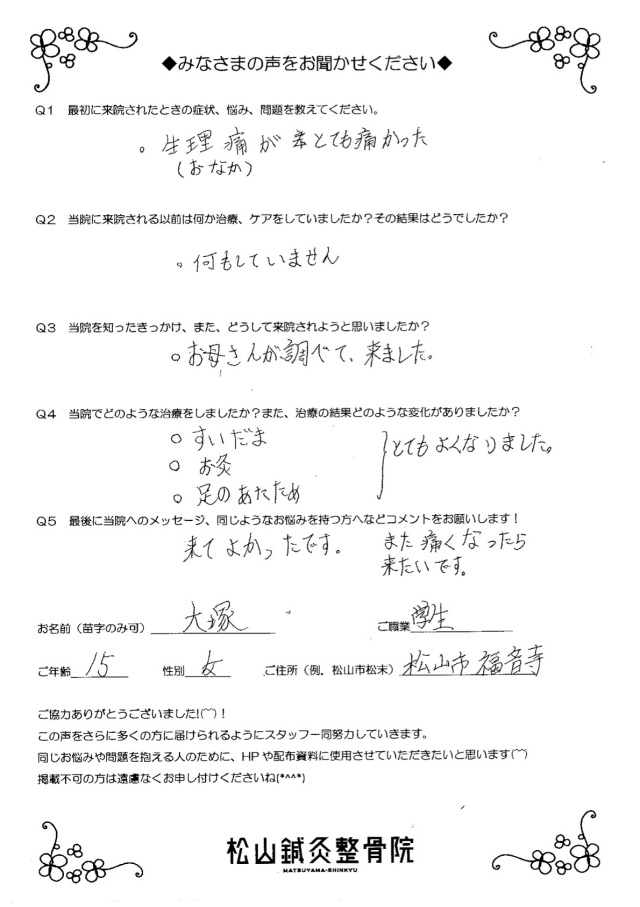 ◆みなさまの声をお聞かせください◆
Q1 最初に来院されたときの症状、悩み、問題を教えてください。
。生理痛がとても痛かった
(おなか)
Q2 当院に来院される以前は何か治療、ケアをしていましたか?その結果はどうでしたか?
。何もしていません
Q3 当院を知ったきっかけ、また、どうして来院されようと思いましたか?
○お母さんが調べて、来ました。
Q4 当院でどのような治療をしましたか?また、治療の結果どのような変化がありましたか?
○ すいだま
○ お灸
○ 足のあたため
とてもよくなりました。
Q5 最後に当院へのメッセージ、同じようなお悩みを持つ方へなどコメントをお願いします!
来てよかったです。 また痛くなったら
来たいです。
お名前(苗字のみ可) 大塚 ご職業 学生
ご年齢 15 性別 女 ご住所(例.松山市松末) 松山市福音寺
ご協力ありがとうございました!(⌒)!
この声をさらに多くの方に届けられるようにスタッフ一同努力していきます。
同じお悩みや問題を抱える人のために、HPや配布資料に使用させていただきたいと思います(⌒)
掲載不可の方は遠慮なくお申し付けくださいね(*^^*)
松山鍼灸整骨院
MATSUYAMA-SHINKYU